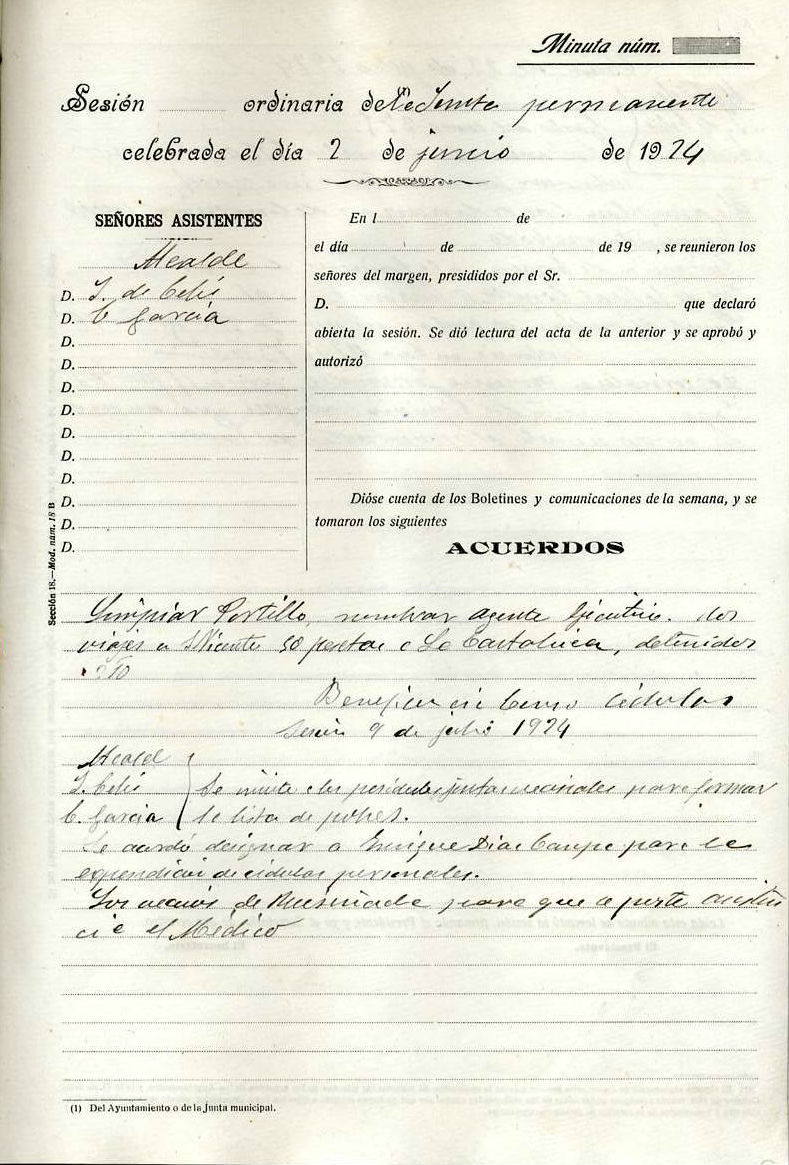 Minuta núm.
Sesión ordinaria de la Junta permanente
celebrada el día 2 de junio de 1924
SEÑORES ASISTENTES
Alcalde
D. S. de Celis
D. C García
D.
D.
D.
D.
D.
D.
D.
D.
D.
D.
En l de
el día de de 19 , se reunieron los
señores del margen, presididos por el Sr.
D. que declaró
abierta la sesión. Se dió lectura del acta de la anterior y se aprobó y
autorizó
Dióse cuenta de los Boletines y comunicaciones de la semana, y se
tomaron los siguientes
ACUERDOS
Sección 18.—Mod. núm. 18 B
Limpiar Portillo, nombrar agente Ejecutivo. dos
viajes a S Vicente 50 pesetas a La Cartulina, detenidos
Censo Cédulas
Sesión 9 de 1924
Alcald
S. Celis Se invite a los juntas vecinales para formar
C. García la lista de pobres.
Se acordó designar a Enrique Diaz Campo para la
expendición de cédulas personales.
Los vecinos de para que a parte
el Médico
(1) Del Ayuntamiento o de la Junta municipal.